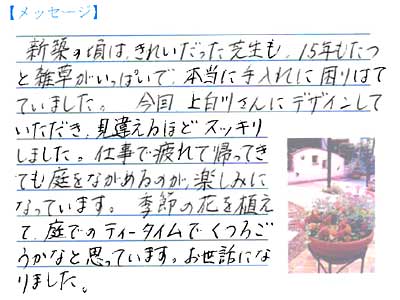 【メッセージ】
新築の頃は、きれいだった芝生も、15年もたつ
と雑草がいっぱいで、本当に手入れに困りはて
ていました。 今回 上白川さんにデザインして
いただき、見違えるほど スッキリ
しました。仕事で疲れて帰ってき
ても庭をながめるのが、楽しみに
なっています。 季節の花を植え
て、庭でのティータイムで くつろご
うかなと思っています。お世話にな
りました。